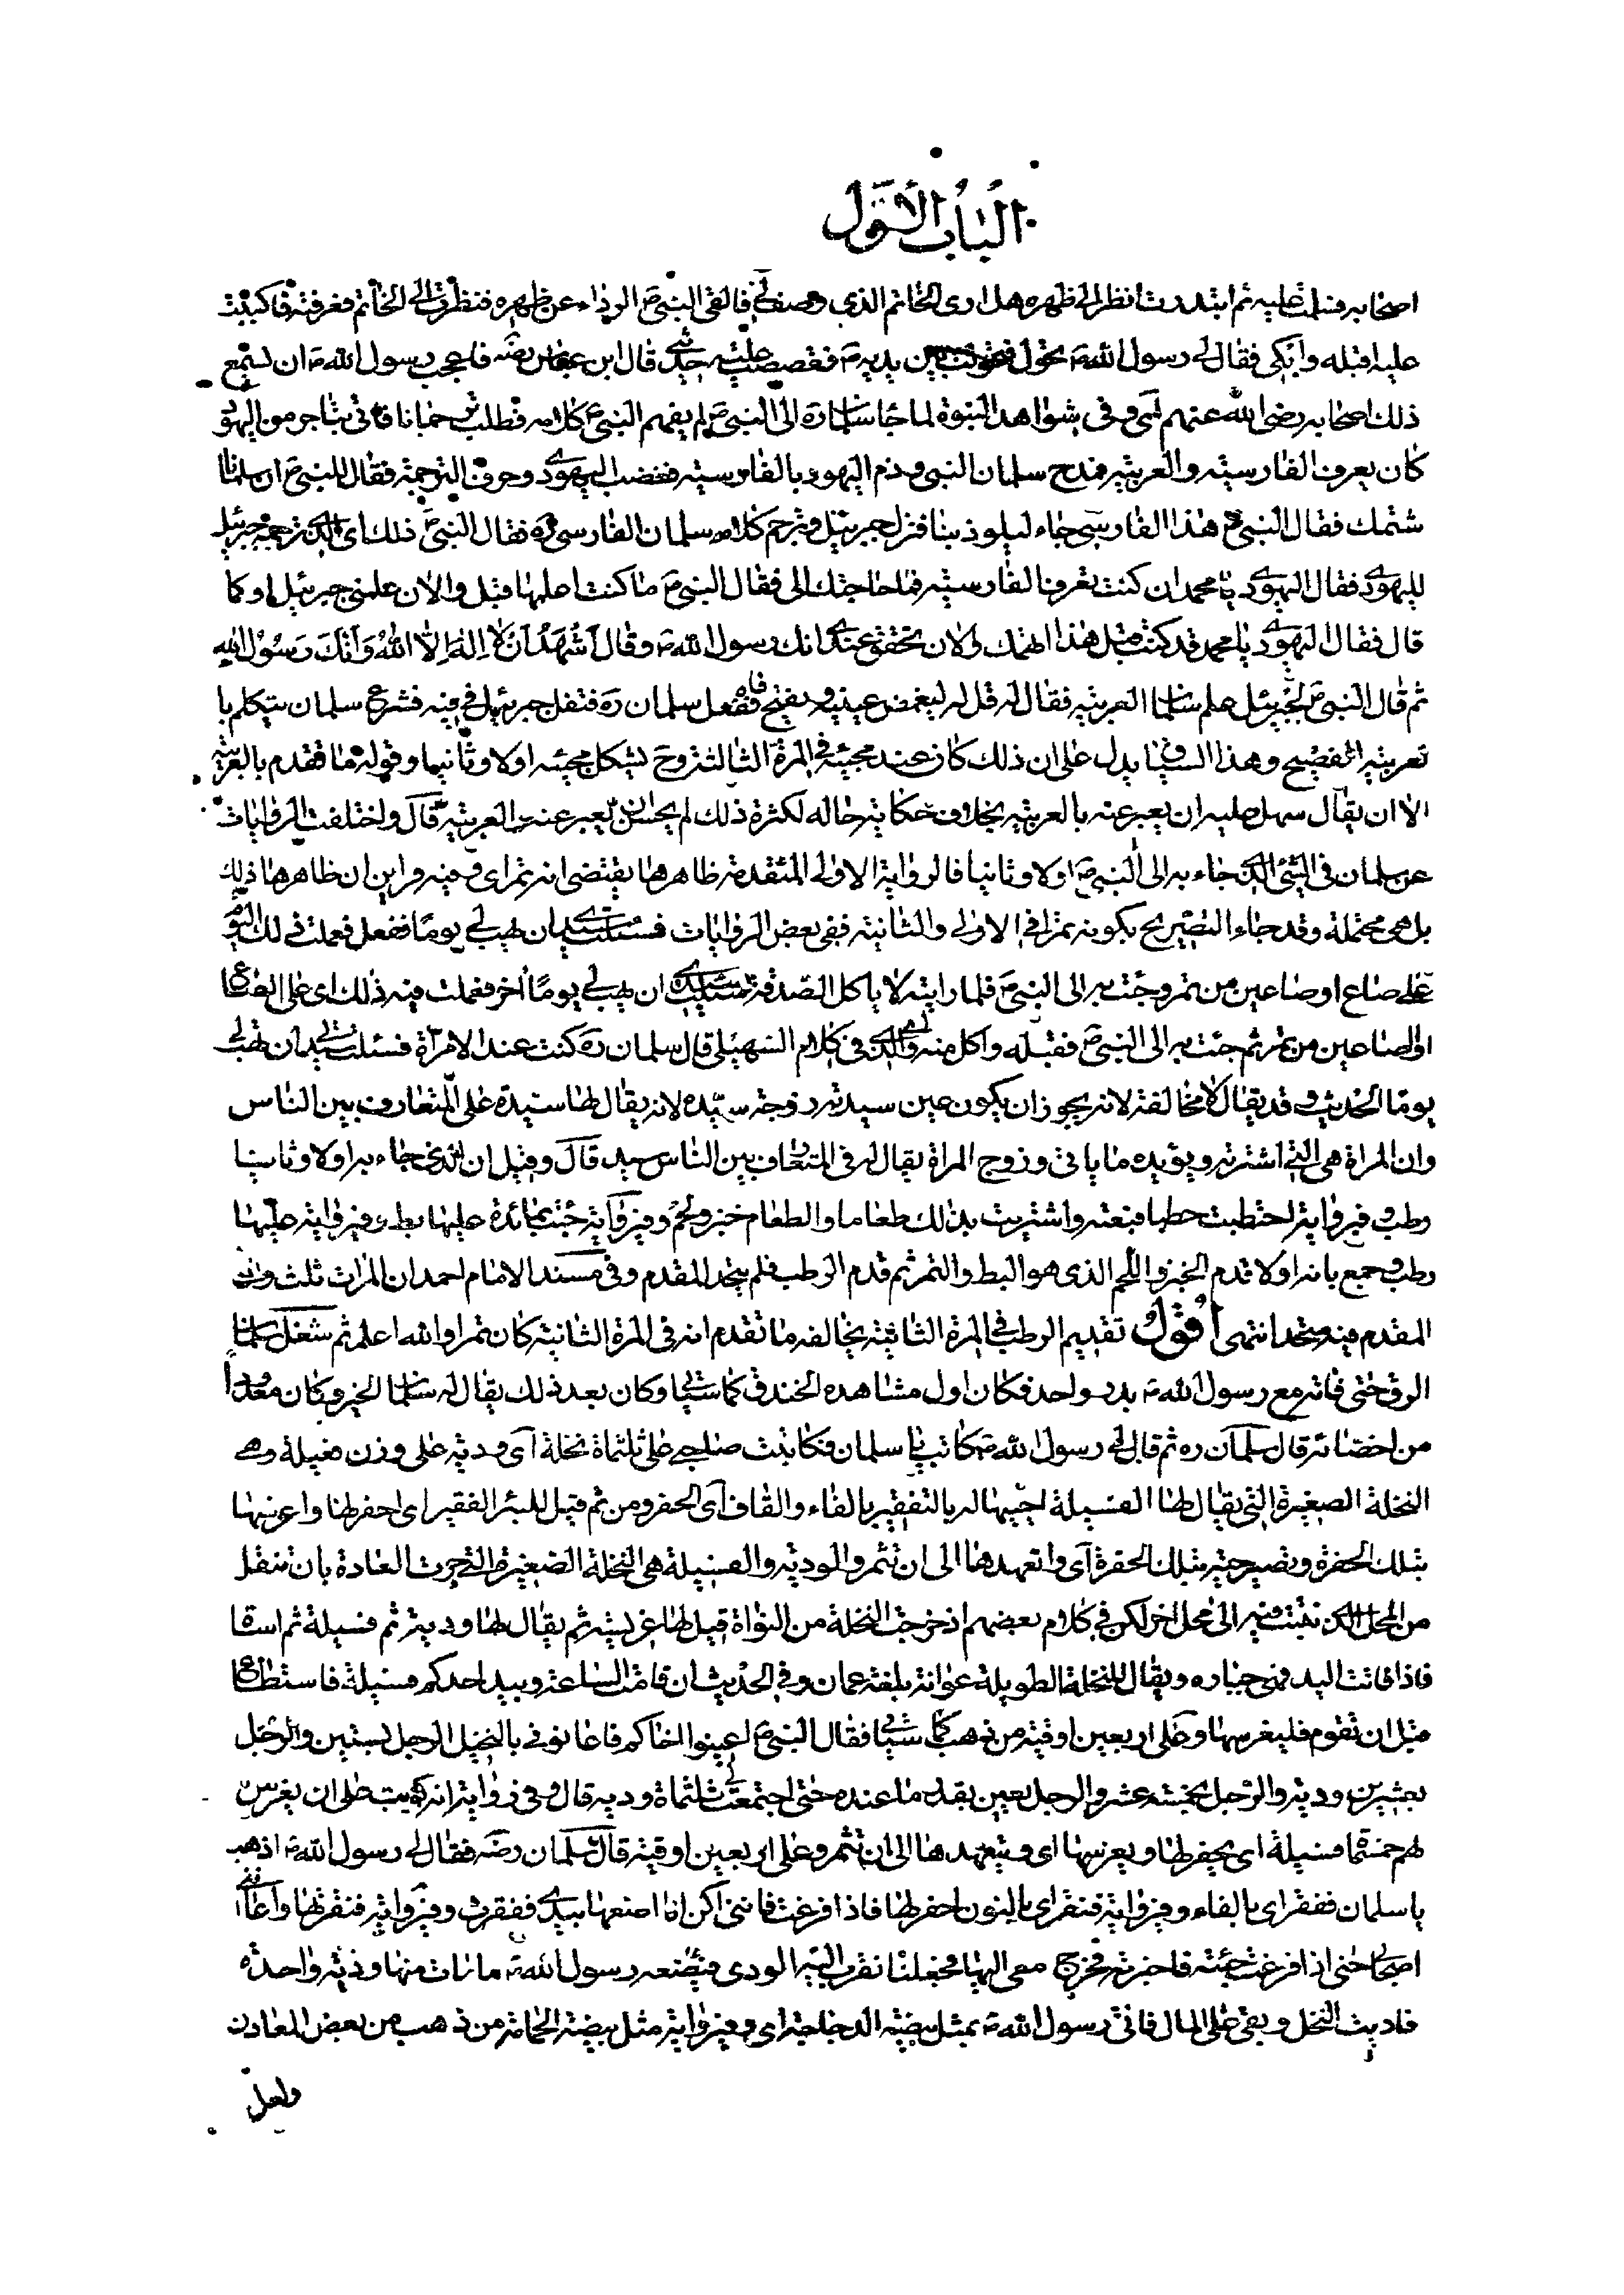 الباب الأول
اصحابه فسلمت عليه ثم ابتدرت انظر الى ظهره هل ارى الخاتم الذي وصف لي فالقى النبي ص الرداء عن ظهره فنظرت الى الخاتم فعرفته فاكببت
عليه اقبله وابكى فقال لي رسول الله ص تحول فتحولت بين يديه ص فقصصت عليه حديثي قال ابن عباس رضه فاعجب رسول الله ص ان يستمع
ذلك اصحابه رضي الله عنهم وفي شواهد النبوة لما جاء سلمان ره الى النبي ص لم يفهم النبي ص كلامه فطلب ترجمانا فاتى بتاجر من اليهود
كان يعرف الفارسية والعربية فمدح سلمان النبي وذم اليهود بالفارسية فغضب اليهودي وحرف الترجمة فقال للنبي ص ان سلمانا
شتمك فقال النبي ص هذا الفارسي جاء ليلوذ بنا فنزل جبرئيل وترجم كلام سلمان الفارسي ره فقال النبي ص ذلك اى الذي ترجمه جبرئيل
لليهودي فقال اليهودي يا محمد ان كنت تعرف الفارسية فما حاجتك الى فقال النبي ص ما كنت اعلمها قبل والان علمني جبرئيل او كما
قال فقال اليهودي يا محمد قد كنت قبل هذا اتهمك والان تحقق عندي انك رسول الله ص وقال اشهد ان لا اله الا الله وانك رسول الله
ثم قال النبي ص لجبرئيل علم سلمانا العربية فقال له قل له ليغمض عينيه ويفتح فاه ففعل سلمان ره فتفل جبرئيل في فيه فشرع سلمان يتكلم با
لعربية الفصيح وهذا السياق يدل على ان ذلك كان عند مجيئه في المرة الثالثة وح يشكل مجيئه اولا وثانيا وقوله ما تقدم بالعربية
الا ان يقال سهل عليه ان يعبر عنه بالعربية بخلاف حكاية حاله لكثرة ذلك لم يحسن ان يعبر عنه بالعربية قال واختلفت الروايات
عن سلمان في الشئ الذي جاء به الى النبي ص اولا وثانيا فالرواية الاولى المتقدمة ظاهرها يقتضى انه تمر اى وفيه اين ان ظاهرها ذلك
بل هى محتملة وقد جاء التصريح بكونه تمرا في الاولى والثانية ففي بعض الروايات فسئلت سيدي ان يهب لي يوما ففعل فعملت في ذلك اليوم
على صاع او صاعين من تمر وجئت به الى النبي ص فلما رايته لا ياكل الصدقة سئلت سيدي ان يهب لي يوما آخر فعملت فيه ذلك اى على الصاع
او الصاعين من تمر ثم جئت به الى النبي ص فقبله واكل منه والذي في كلام السهيلى قال سلمان ره كنت عند الامرأة فسئلت سيدي ان يهب لي
يوما الحديث وقد يقال لا مخالفة لانه يجوز ان يكون عين سيدته زوجة سيده لانه يقال لها سيدة على المتعارف بين الناس
وان المراة هى التي اشترته ويؤيده ما ياتى وزوج المراة يقال له في المتعارف بين الناس سيد قال وقيل ان الذى جاء به اولا وثانيا
رطب وفي رواية احتطبت حطبا فبعته واشتريت بذلك طعاما والطعام خبز ولحم وفي رواية جئت بمائدة عليها بط وفي رواية عليها
رطب وجمع بانه اولا قدم الخبز واللحم الذى هو البط والتمر ثم قدم الرطب فلم يتحد المقدم وفي مسند الامام احمد ان المرات ثلث وان
المقدم فيه متحد انتهى أقول تقديم الرطب في المرة الثانية يخالفه ما تقدم انه في المرة الثانية كان تمرا والله اعلم ثم شغل سلمان
الرق حتى فاته مع رسول الله ص بدر واحد فكان اول مشاهده الخندق كما سيأتي وكان بعد ذلك يقال له سلمان الخير وكان معدودا
من اخصائه قال سلمان ره ثم قال لي رسول الله ص كاتب يا سلمان فكاتبت صاحبي على ثلثماة نخلة اى ودية على وزن فعيلة وهى
النخلة الصغيرة التى يقال لها الفسيلة احييها له بالتفقير بالفاء والقاف اى الحفر ومن ثم قيل للبئر الفقير اى احفر لها واغرسها
بتلك الحفرة وتصير حية بتلك الحفرة اى واتعهدها الى ان تثمر والودية والفسيلة هى النخلة الصغيرة التي جرت العادة بان تنقل
من المحل الذي تنبت فيه الى محل اخر لكن في كلام بعضهم اذ خرجت النخلة من النواة قيل لها غريسة ثم يقال لها ودية ثم فسيلة ثم اشاء
فاذا فاتت اليد فهي جباره ويقال للنخلة الطويلة عوانة بلغة عمان وفي الحديث ان قامت الساعة وبيد احدكم فسيلة فاستطاع
قبل ان تقوم فليغرسها وعلى اربعين اوقية من ذهب كما سيأتي فقال النبي ص اعينوا اخاكم فاعانونى بالنخيل الرجل بستين والرجل
بعشرين ودية والرجل بخمسة عشر والرجل يعين بقدر ما عنده حتى اجتمعت لي ثلثماة ودية قال وفى رواية انه كوتب على ان يغرس
لهم خمسماة فسيلة اى يحفر لها ويغرسها اى ويتعهدها الى ان تثمر وعلى اربعين اوقية قال سلمان رضه فقال لى رسول الله ص اذهب
يا سلمان ففقر اى بالفاء وفي رواية فنقر اى بالنون احفر لها فاذا فرغت فاتنى اكن انا اضعها بيدي ففقرت وفي رواية فنقرتها واعانني
اصحابي حتى اذا فرغت جئته فاخبرته فخرج معى اليها فجعلنا نقرب اليه الودى فيضعه رسول الله ص ما مات منها ودية واحدة
فاديت النخل وبقى على المال فاتى رسول الله ص بمثل بيضة الدجاجة اى وفي رواية مثل بيضة الحمامة من ذهب من بعض المعادن
ولعل